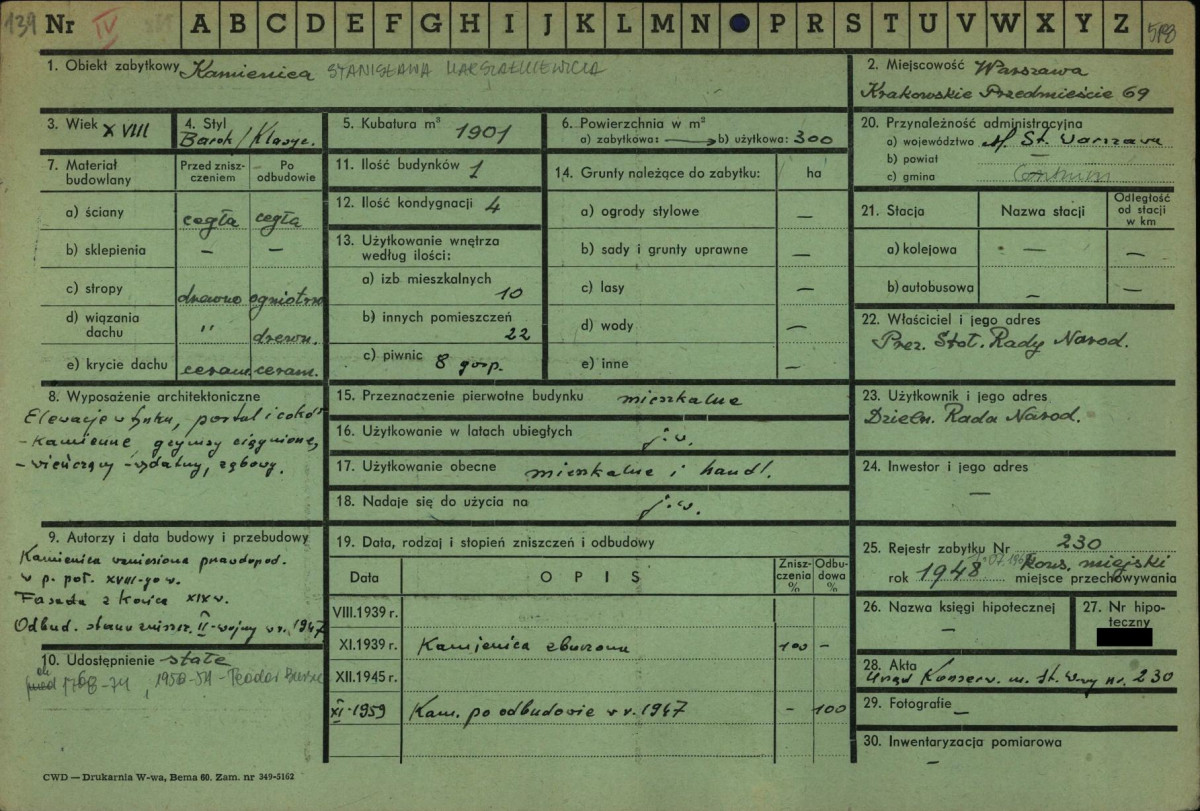 139 Nr IV A B C D E F G H I J K L M N P R S T U V W X Y Z 518
1. Obiekt zabytkowy Kamienica STANISŁAWA
2. Miejscowość Warszawa
Krakowskie Przedmieście 69
3. Wiek XVIII
4. Styl
Barok/Klasyc.
5. Kubatura m³ 1901
6. Powierzchnia w m²
a) zabytkowa: b) użytkowa: 300
20. Przynależność administracyjna
a) województwo M. St. Warszawa
b) powiat —
c) gmina
7. Materiał budowlany
Przed zniszczeniem
Po odbudowie
a) ściany cegła cegła
b) sklepienia — —
c) stropy drewno ogniotrw
d) wiązania dachu " drewn.
e) krycie dachu ceram. ceram.
11. Ilość budynków 1
12. Ilość kondygnacji 4
13. Użytkowanie wnętrza
według ilości:
a) izb mieszkalnych
10
b) innych pomieszczeń
22
c) piwnic 8 gosp.
14. Grunty należące do zabytku: ha
a) ogrody stylowe —
b) sady i grunty uprawne —
c) lasy —
d) wody —
e) inne —
21. Stacja Nazwa stacji Odległość od stacji w km
a) kolejowa — —
b) autobusowa — —
22. Właściciel i jego adres
Prez. Stoł. Rady Narod.
8. Wyposażenie architektoniczne
Elewacje w tynku, portal i cokół
- kamienne, gzymsy ciągnione,
- wieńczący - wydatny, ząbkowy.
15. Przeznaczenie pierwotne budynku mieszkalne
16. Użytkowanie w latach ubiegłych j.w.
17. Użytkowanie obecne mieszkalne i handl.
18. Nadaje się do użycia na j.w.
23. Użytkownik i jego adres
Dzieln. Rada Narod.
24. Inwestor i jego adres
—
9. Autorzy i data budowy i przebudowy
Kamienica wzniesiona prawdopod.
w p. poł. XVIII-go w.
Fasada z końca XIX w.
Odbud. stanu zniszcz. II-wojny w r. 1947
10. Udostępnienie stałe
1768-74, 1950-51 - Teodor Bursze
19. Data, rodzaj i stopień zniszczeń i odbudowy
Data OPIS Zniszczenia % Odbudowa %
VIII.1939 r.
XI.1939 r. Kamienica zburzona 100 -
XII.1945 r.
XI-1959 Kam. po odbudowie w r. 1947 - 100
25. Rejestr zabytku Nr 230
rok 1948 Kons. miejski
miejsce przechowywania
26. Nazwa księgi hipotecznej
—
27. Nr hipoteczny
28. Akta
Urząd Konserw. m. St. Wwy nr. 230
29. Fotografie —
30. Inwentaryzacja pomiarowa
—
CWD — Drukarnia W-wa, Bema 60. Zam. nr 349-5162